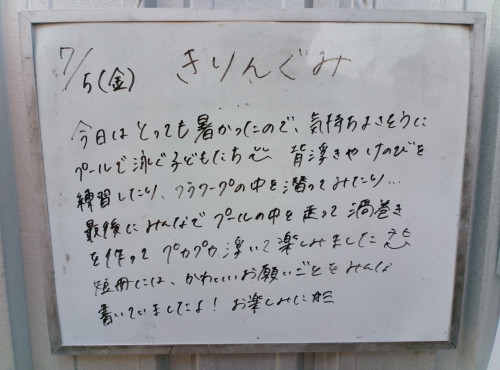 7/5(金) きりんぐみ
今日はとっても暑かったので、気持ちよさそうに
プールで泳ぐ子どもたち 背浮きやけのびを
練習したり、フラフープの中を潜ってみたり…
最後にみんなでプールの中を走って渦巻き
を作って プカプカ浮いて楽しみました
短冊には、かわいいお願いごとをみんな
書いていましたよ! お楽しみに